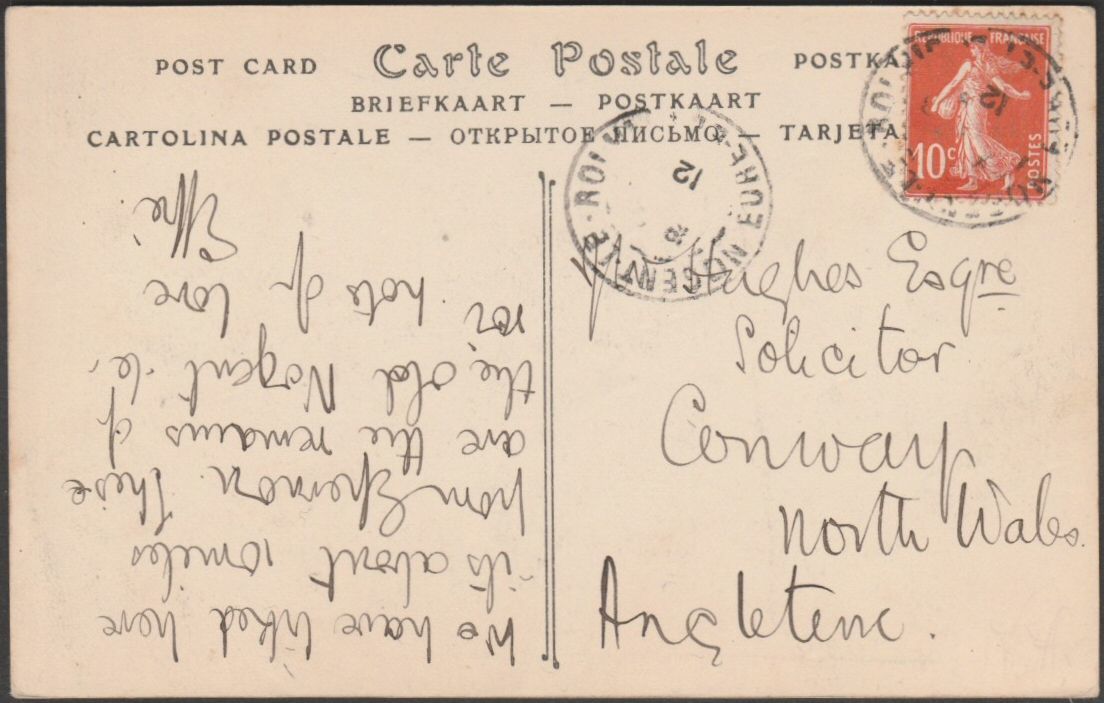 POST CARD Carte Postale POSTKA
BRIEFKAART — POSTKAART
CARTOLINA POSTALE — ОТКРЫТОЕ ПИСЬМО — TARJETA
REPUBLIQUE FRANÇAISE
10c
POSTES
NOGENT-LE-ROI
EURE-ET-
12
12
Hughes Esqre
Solicitor
Conway
North Wales.
Angleterre.
We have biked here
it's about 10 miles
from Epernon. These
are the remains of
the old Nogent le
roi, lots of
love
Effie.